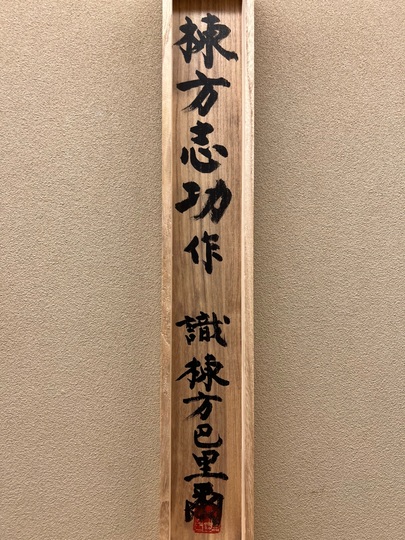 棟方志功作 識 棟方巴里爾